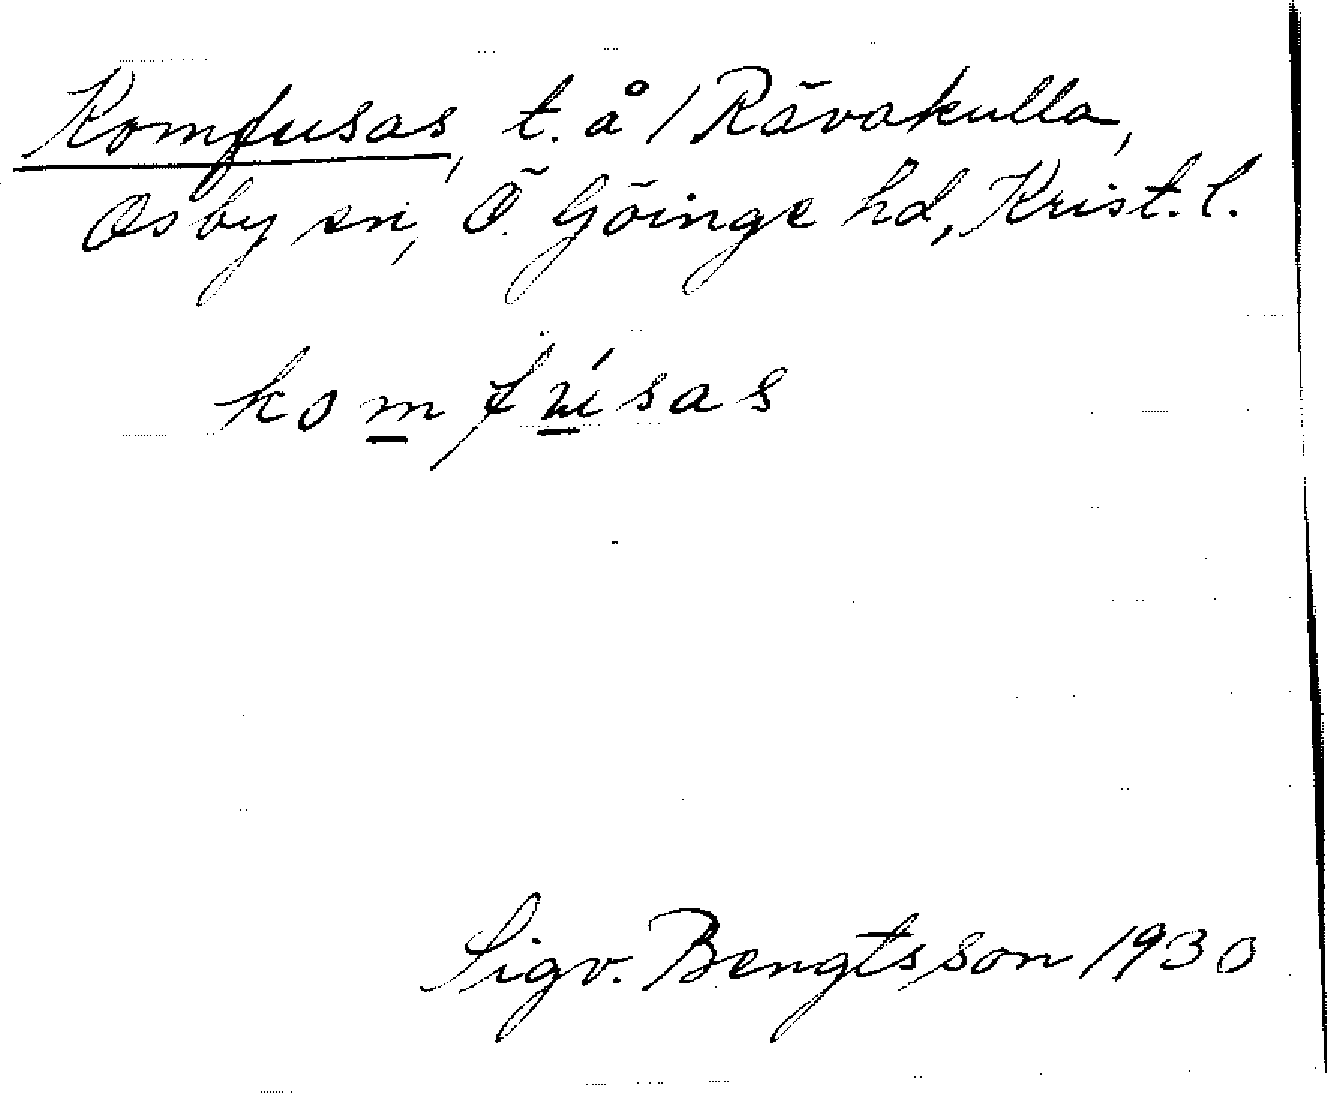 Komfusas, t. å 1 Rävakulla,
Osby sn, Ö. Göinge hd, Krist. l.
komfúsas
Sigv. Bengtsson 1930